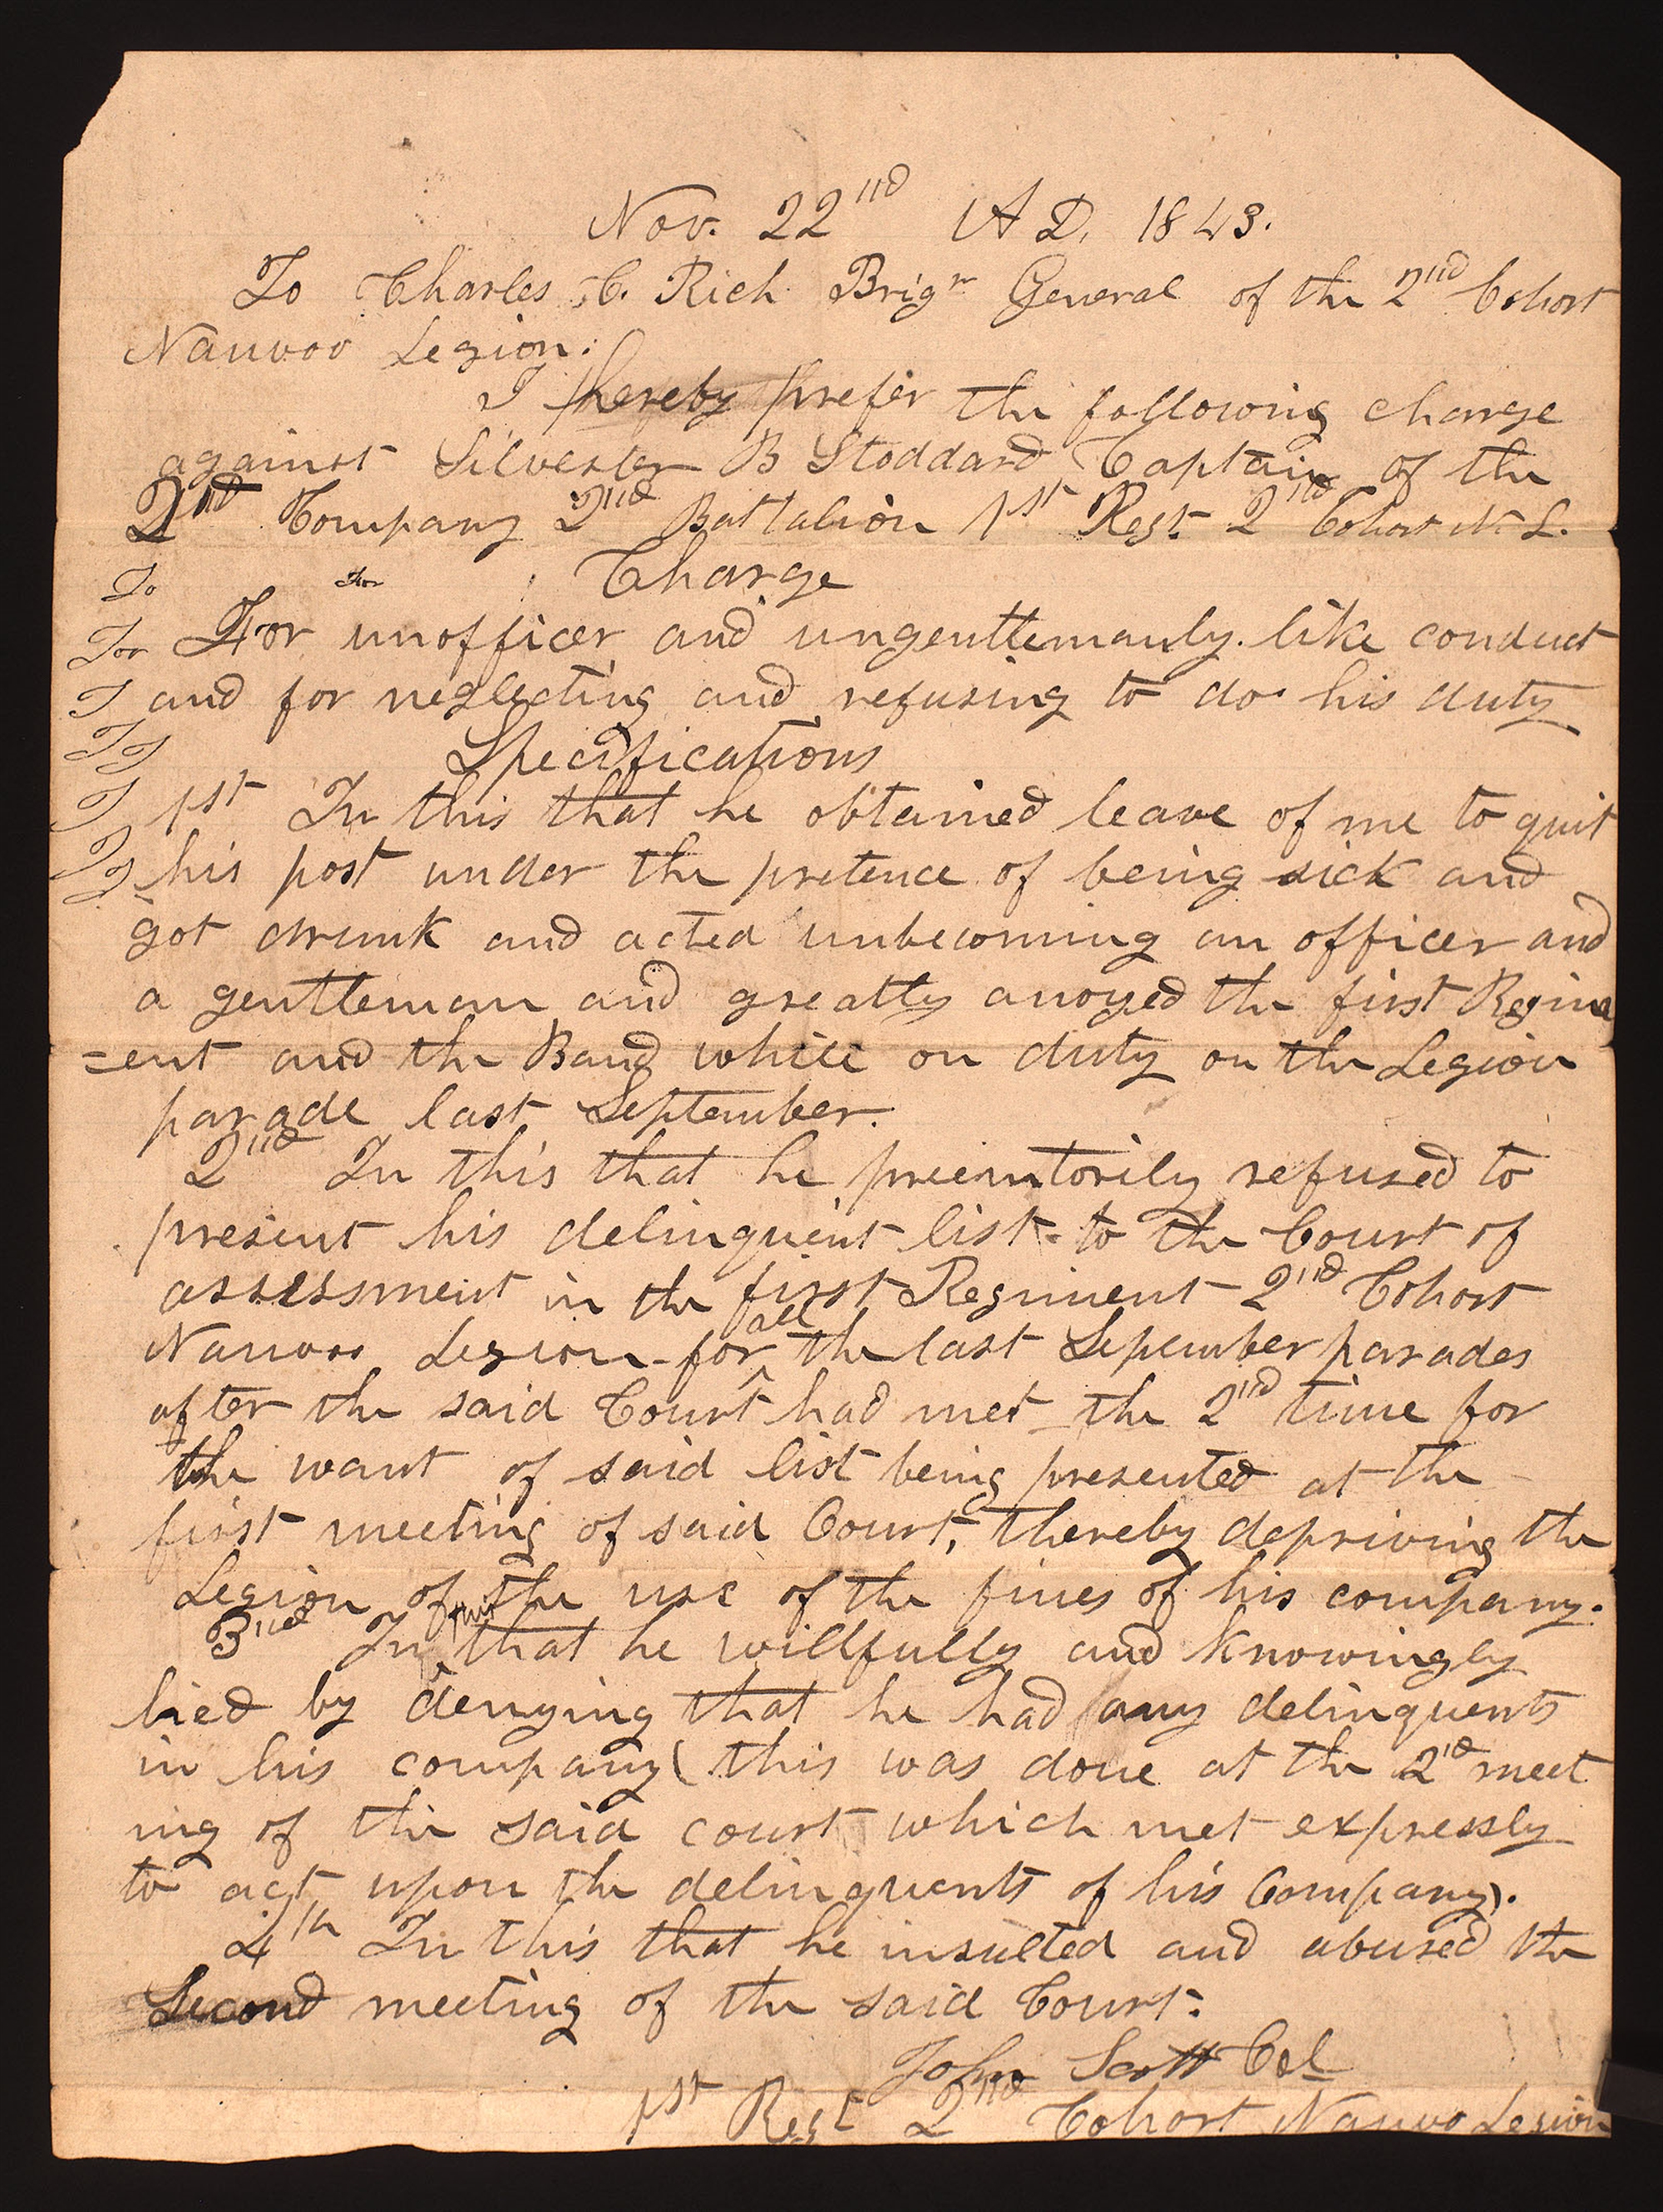 Nov. 22nd A D. 1843.
To Charles C. Rich Brigr General of the 2nd Cohort
Nauvoo Legion:
I hereby prefer the following charge
against Silvester B Stoddard Captain of the
2nd Company 2nd Battalion 1st Regt. 2nd Cohort N. L.
To For Charge
For For unofficer and ungenttemanly. like conduct
I and for neglecting and refusing to do his duty
I I Specifications
I 1st In this that he obtained leave of me to quit
I I his post under the pretence of being sick and
got drunk and acted unbecoming an officer and
a genttleman and greatly anoyed the first Regim
=ent and the Band while on duty on the Legion
parade last September.
2nd In this that he preemtorily refused to
present his delinquent list to the Court of
assessment in the first Regiment 2nd Cohort
Nauvoo Legion for all the last Sepember parades
after the said Court had met the 2nd time for
the want of said list being presented at the
first meeting of said Court, thereby depriving the
Legion of the use of the fines of his company.
3rd In this that he willfully and knowingly
lied by denying that he had any delinquents
in his company (this was done at the 2nd meet
ing of the said court which met expressly
to act upon the delinquents of his Company).
4th In this that he insulted and abused the
Second meeting of the said Court.
John Scott Col
1st Regt 2nd Cohort Nauvo Legion